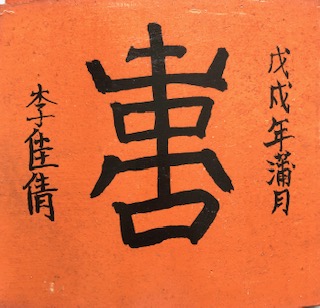 戊戌年蒲月
李佳倩